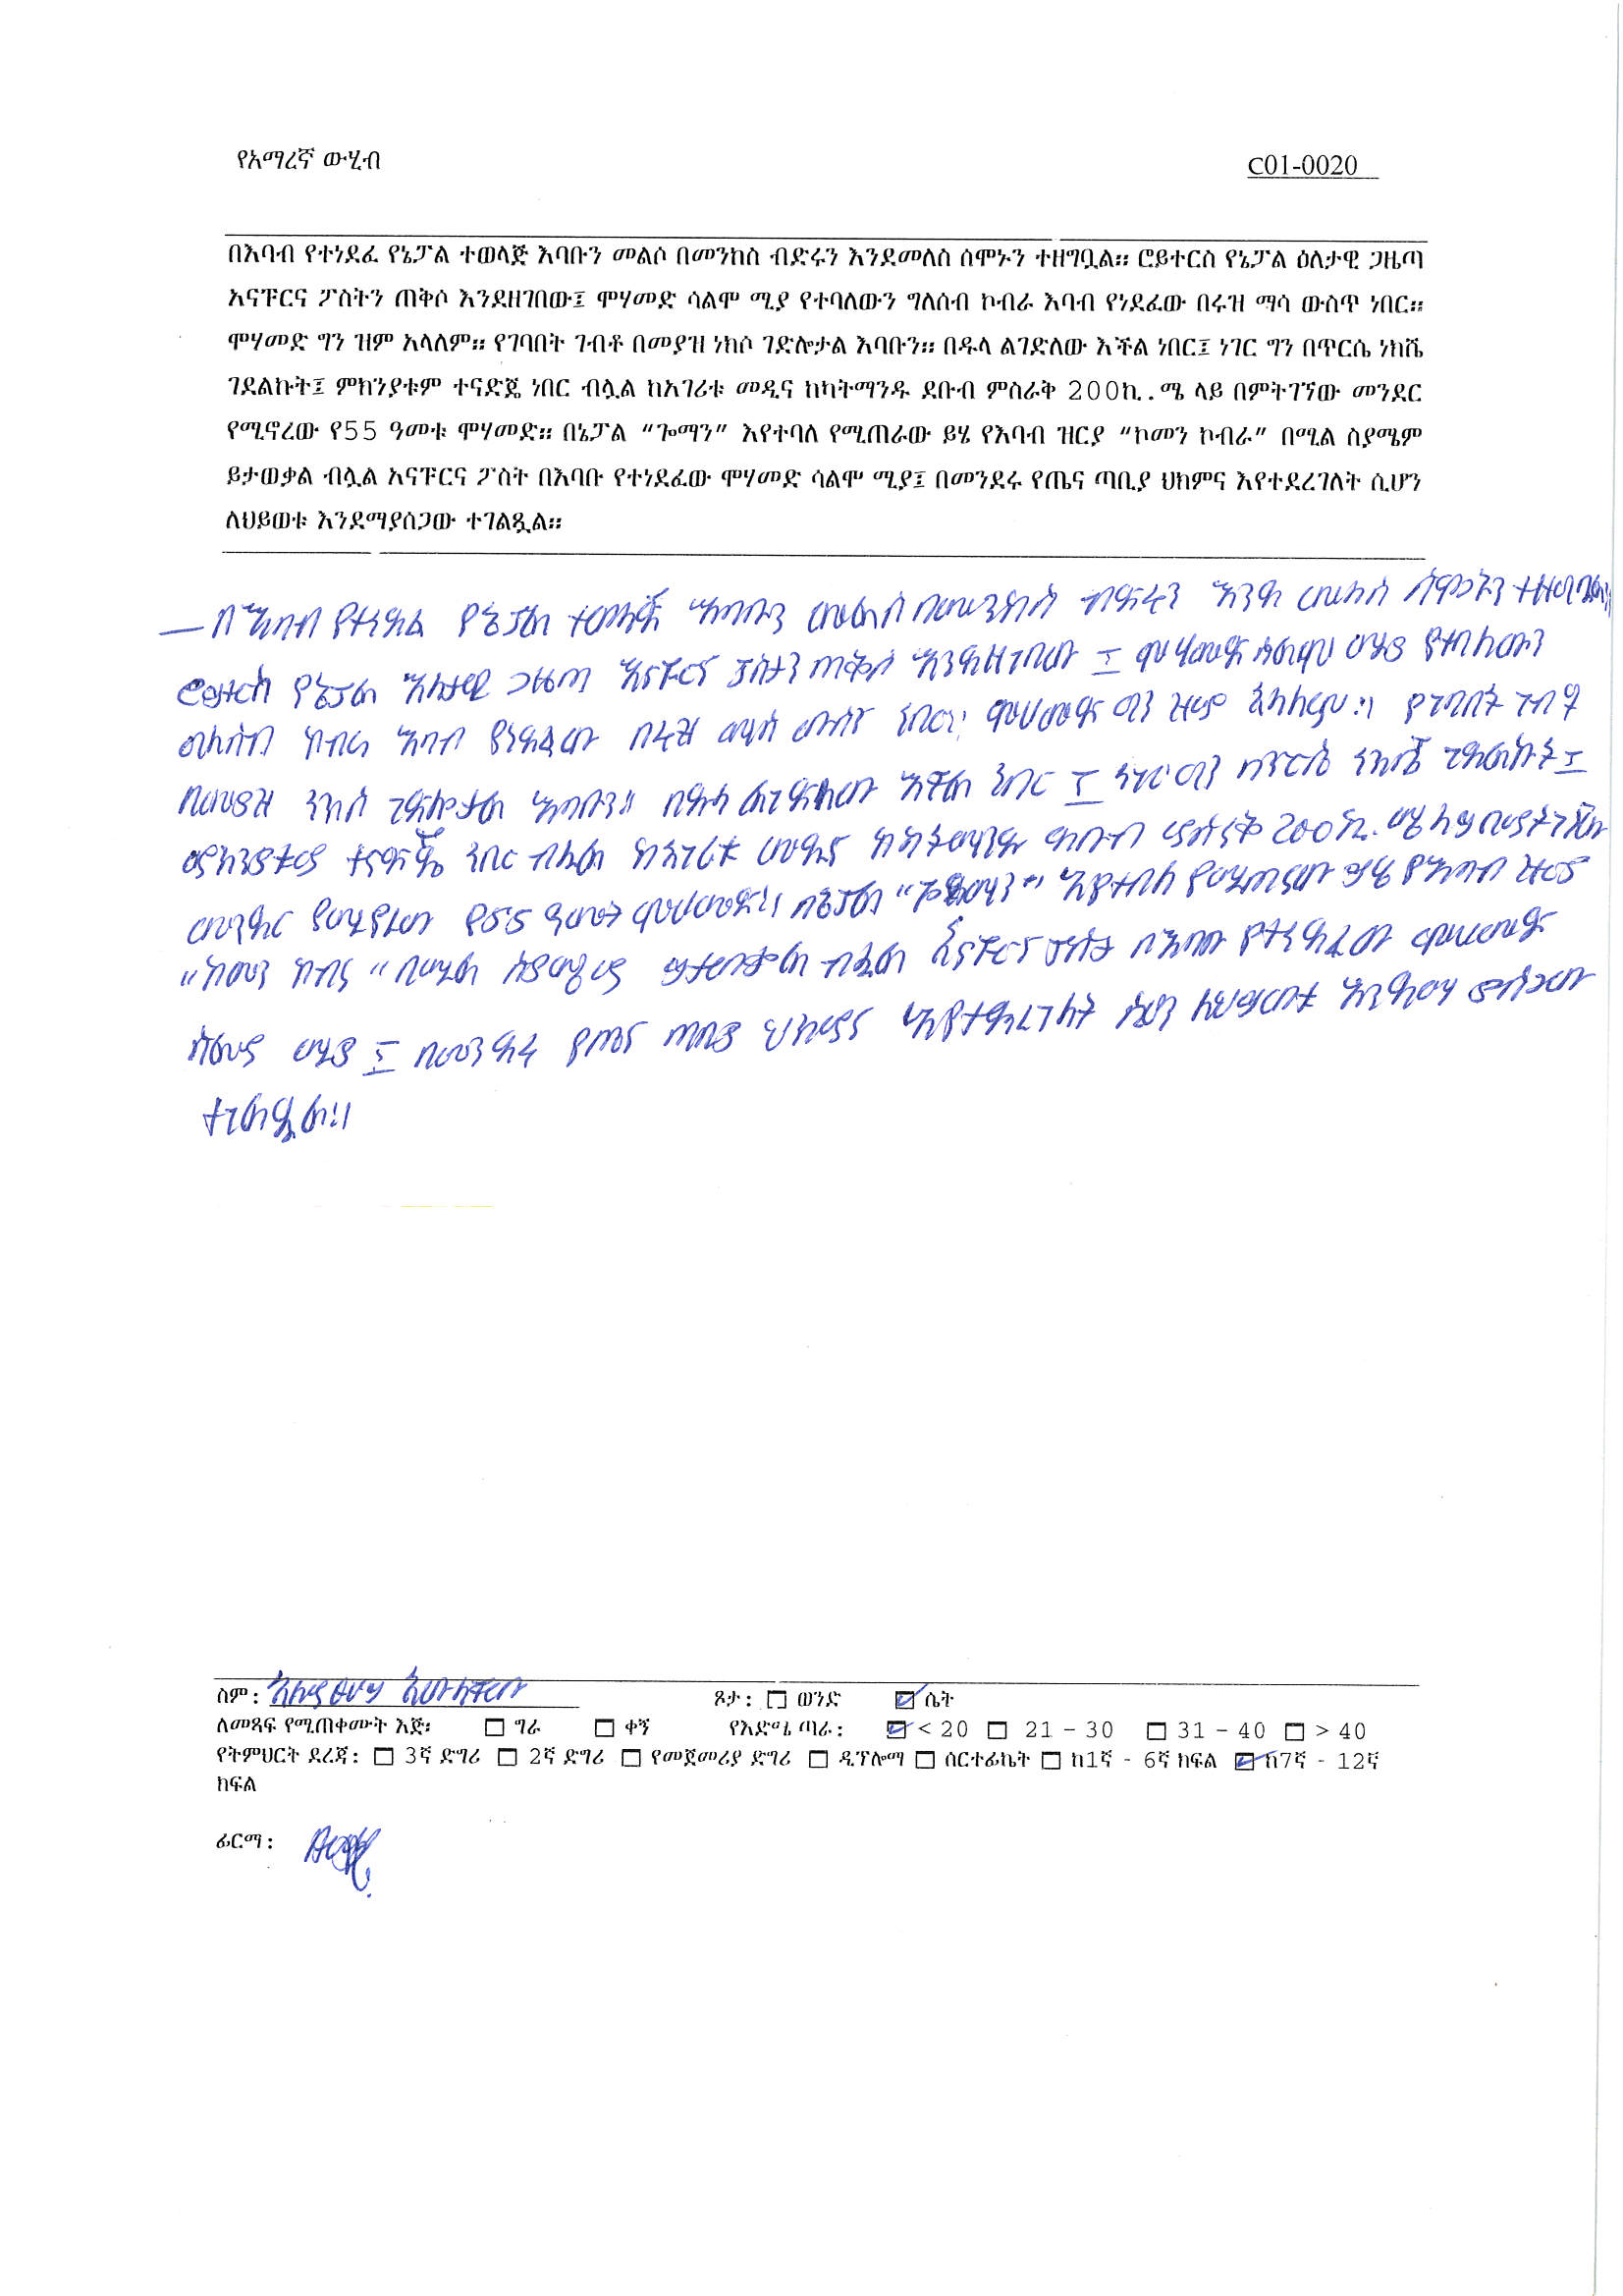 የአማረኛ ውሂብ
C01-0020
በእባብ የተነደፈ የኔፓል ተወላጅ እባቡን መልሶ በመንከስ ብድሩን እንደመለስ ሰሞኑን ተዘግቧል። ሮይተርስ የኔፓል ዕለታዊ ጋዜጣ
አናፑርና ፖስትን ጠቅሶ እንደዘገበው፤ ሞሃመድ ሳልሞ ሚያ የተባለውን ግለሰብ ኮብራ እባብ የነደፈው በሩዝ ማሳ ውስጥ ነበር።
ሞሃመድ ግን ዝም አላለም። የገባበት ገብቶ በመያዝ ነክሶ ገድሎታል እባቡን። በዱላ ልገድለው እችል ነበር፤ ነገር ግን በጥርሴ ነክሼ
ገደልኩት፤ ምክንያቱም ተናድጄ ነበር ብሏል ከአገሪቱ መዲና ከካትማንዱ ደቡብ ምስራቅ 200ኪ.ሜ ላይ በምትገኘው መንደር
የሚኖረው የ55 ዓመቱ ሞሃመድ። በኔፓል “ጐማን” እየተባለ የሚጠራው ይሄ የእባብ ዝርያ “ኮመን ኮብራ” በሚል ስያሜም
ይታወቃል ብሏል አናፑርና ፖስት በእባቡ የተነደፈው ሞሃመድ ሳልሞ ሚያ፤ በመንደሩ የጤና ጣቢያ ህክምና እየተደረገለት ሲሆን
ለህይወቱ እንደማያሰጋው ተገልጿል።
በእባብ የተነደፈ የኔፓል ተወላጅ እባቡን መልሶ በመንከስ ብድሩን እንደ መለስ ሰሞኑን ተዘግቧል።
የኔፓል እለታዊ ጋዜጣ አናፑርና ፖስትን ጠቅሶ እንደዘገበው ፤ ሞሃመድ ሳልሞ ሚያ የተባለውን
ግለሰብ ኮብራ እባብ የነደፈው በሩዝ ማሳ ውስጥ ነበር። ሞሀመድ ግን ዝም አላለም። የገባበት ገብቶ
በመያዝ ነክሶ ገድሎታል እባቡን። በዱላ ልገድለው እችል ነበር ፤ ነገር ግን በጥርሴ ነክሼ ገደልኩት፤
ምክንያቱም ተናድጄ ነበር ብሏል ከአገሪቱ መዲና ከካትማንዱ ደቡብ ምስራቅ 200ኪ.ሜ ላይ በምትገኘው
መንደር የሚኖረው የ55 ዓመቱ ሞሀመድ። በኔፓል እየተባለ የሚጠራው ይሄ የእባብ ዝርያ
"ኮመን ኮብራ" በሚል ስያሜም ይታወቃል ብሏል አናፑርና ፖስት በእባቡ የተነደፈው ሞሀመድ
ሚያ ፤ በመንደሩ የጤና ጣቢያ ህክምና እየተደረገለት ሲሆን ለህይወቱ
ተገልጿል።
ስም:
ጾታ: ወንድ ሴት
ለመጻፍ የሚጠቀሙት እጅ፡ ግራ ቀኝ የእድሜ ጣራ: < 20 21 - 30 31 - 40 > 40
የትምህርት ደረጃ: 3ኛ ድግሪ 2ኛ ድግሪ የመጀመሪያ ድግሪ ዲፕሎማ ሰርተፊኬት ከ1ኛ - 6ኛ ክፍል ከ7ኛ - 12ኛ
ክፍል
ፊርማ: